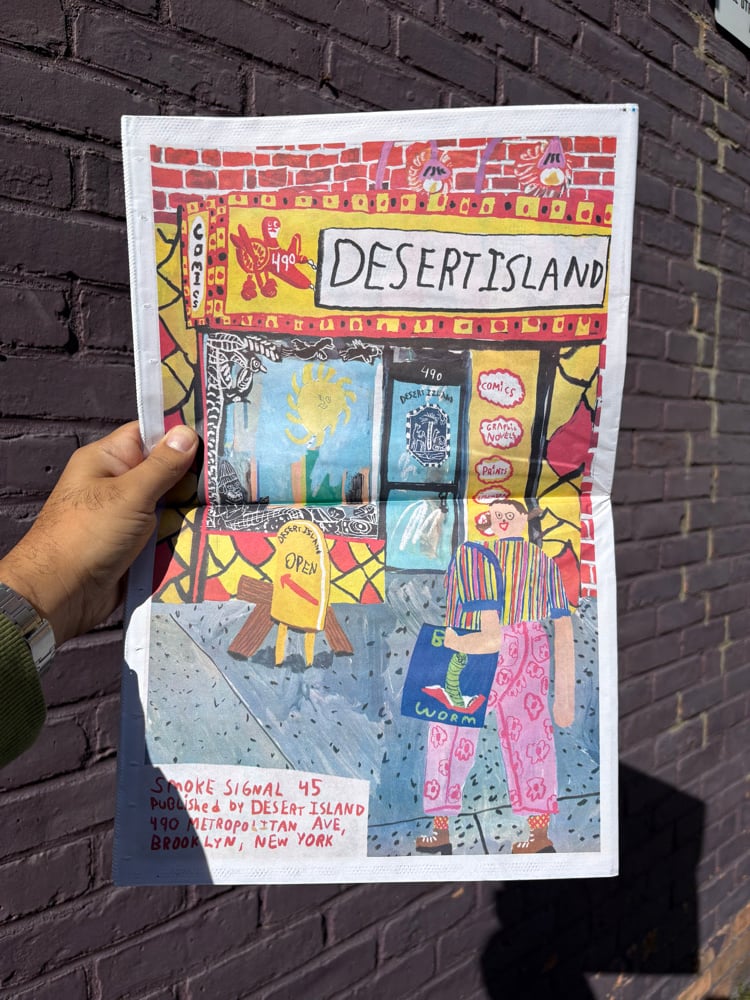 COMICS
490
DESERT ISLAND
490
DESERT ISLAND
COMICS
GRAPHIC
NOVELS
PRINTS
DESERT ISLAND
OPEN
WORM
SMOKE SIGNAL 45
PUBLISHED by DESERT ISLAND
490 METROPOLITAN AVE,
BROOKLYN, NEW YORK